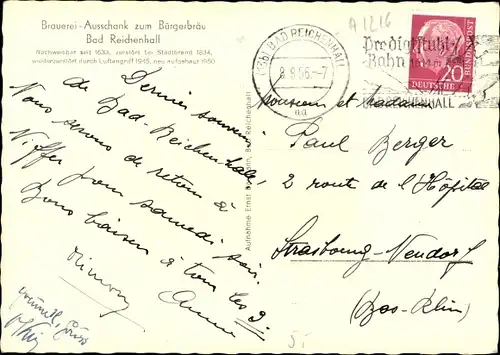 Brauerei-Ausschank zum Bürgerbräu
Bad Reichenhall
Nachweisbar seit 1633, zerstört bei Stadtbrand 1834,
wiederzerstört durch Luftangriff 1945, neu aufgebaut 1950
A1216
(13b) BAD REICHENHALL
8.9.56.-7
aa
Predigtstuhl-
Bahn 1614 m
REICHENHALL
20
DEUTSCHE BUNDESPOST
Dernier souvenir
de Bad-Reichenhall,
Nous serons de retour à
Niffer pour samedi soir.
Bons baisers à tous les 2
Anne
Aufnahme Ernst Baumann, Bad Reichenhall
Monsieur et Madame
Paul Berger
2 route de l'Hôpital
Strasbourg-Neudorf
(Bas-Rhin)